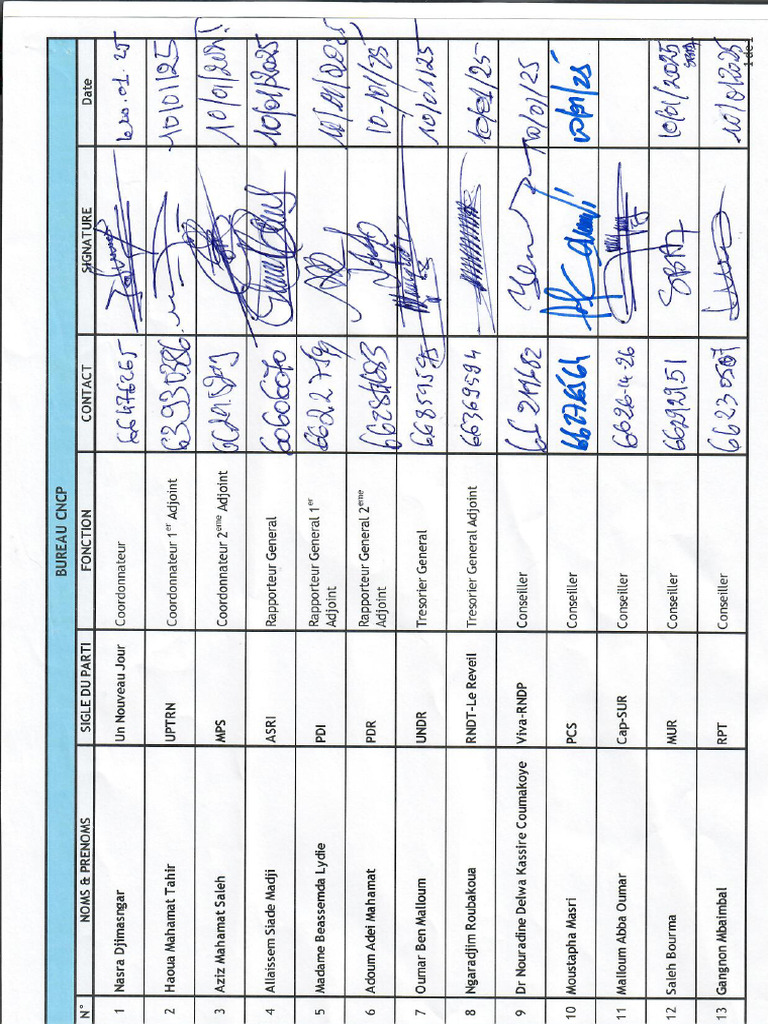 BUREAU CNCP
N° NOMS & PRENOMS SIGLE DU PARTI FONCTION CONTACT SIGNATURE Date
1 Nasra Djimasngar Un Nouveau Jour Coordonnateur 66476265
2 Haoua Mahamat Tahir UPTRN Coordonnateur 1er Adjoint 63930386 10/01/25
3 Aziz Mahamat Saleh MPS Coordonnateur 2eme Adjoint 10/01/2025
4 Allaissem Siade Madji ASRI Rapporteur General 60606070 10/01/2025
5 Madame Beassemda Lydie PDI Rapporteur General 1er
Adjoint
6 Adoum Adei Mahamat PDR Rapporteur General 2eme
Adjoint 10-01/25
7 Oumar Ben Malloum UNDR Tresorier General 10/01/25
8 Ngaradjim Roubakoua RNDT-Le Reveil Tresorier General Adjoint 66369594
9 Dr Nouradine Delwa Kassire Coumakoye Viva-RNDP Conseiller 10/01/25
10 Moustapha Masri PCS Conseiller 66276564
11 Malloum Abba Oumar Cap-SUR Conseiller 6626-14-26
12 Saleh Bourma MUR Conseiller 66292951 10/01/2025
13 Gangnon Mbaimbal RPT Conseiller 10/01/2025
1 de 1